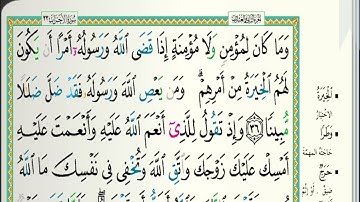 سُورَةُ الأَحْزَابِ ٣٣
وَمَا كَانَ لِمُؤْمِنٍ وَلَا مُؤْمِنَةٍ إِذَا قَضَى اللَّهُ وَرَسُولُهُ أَمْرًا أَن يَكُونَ
لَهُمُ الْخِيَرَةُ مِنْ أَمْرِهِمْ وَمَن يَعْصِ اللَّهَ وَرَسُولَهُ فَقَدْ ضَلَّ ضَلَالًا
مُّبِينًا ٣٦ وَإِذْ تَقُولُ لِلَّذِي أَنْعَمَ اللَّهُ عَلَيْهِ وَأَنْعَمْتَ عَلَيْهِ
أَمْسِكْ عَلَيْكَ زَوْجَكَ وَاتَّقِ اللَّهَ وَتُخْفِي فِي نَفْسِكَ مَا اللَّهُ
الْخِيَرَةُ
الاختيار
وَطَرًا
حاجته المهمّة
حَرَجٌ
ضيق